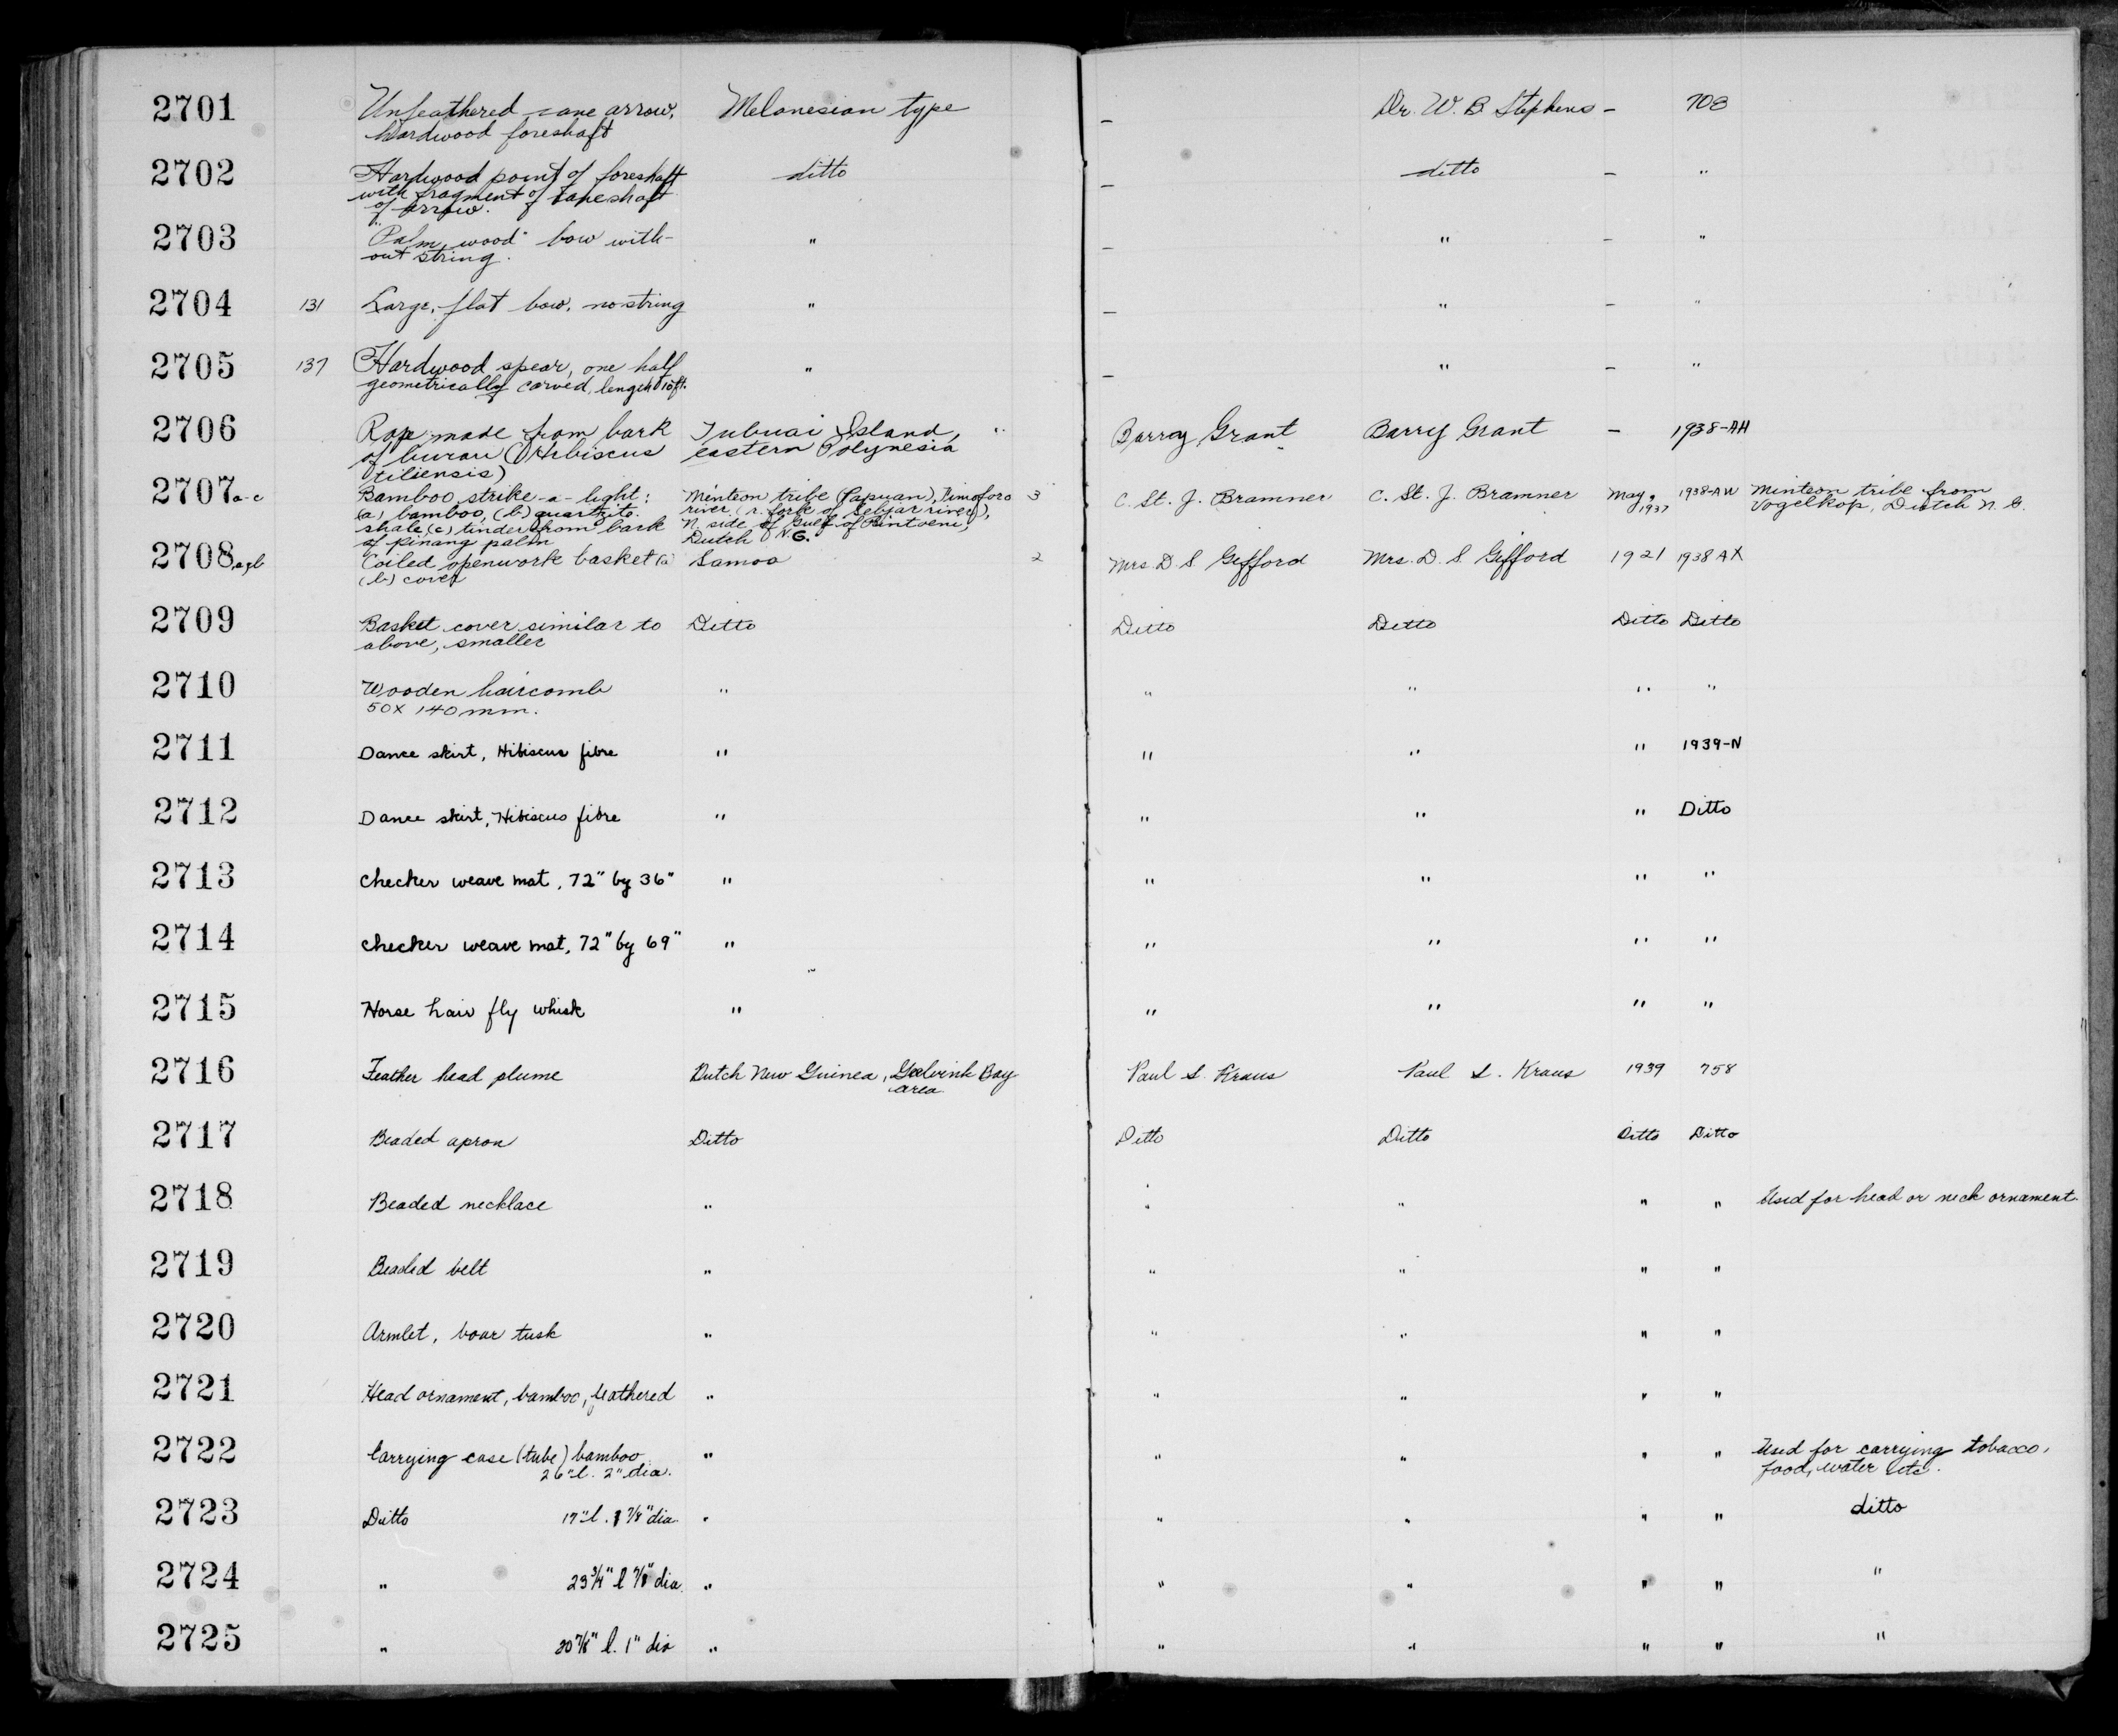 2701 Unfeathered cane arrow, Melanesian type - Dr. W. B. Stephens - 708
hardwood foreshaft
2702 Hardwood point of foreshaft ditto - ditto - "
with fragment of cane shaft
of arrow.
2703 "Palm wood" bow with- " - " - "
out string.
2704 131 Large, flat bow, no string " - " - "
2705 137 Hardwood spear, one half " - " - "
geometrically carved, length 10 ft.
2706 Rope made from bark Tubuai Island, " Barry Grant Barry Grant - 1938-AH
of burau (Hibiscus eastern Polynesia
tiliensis)
2707 a-c Bamboo strike-a-light: Minteon tribe (Papuan), Timoforo 3 C. St. J. Bramner C. St. J. Bramner May, 1937 1938-AW Minteon tribe from
(a) bamboo, (b) quartzite river (r. fork of Sebjar river), Vogelkop, Dutch N. G.
shale (c) tinder from bark N. side of Gulf of Bintoeni,
of pinang palm Dutch N.G.
2708 a,b Coiled openwork basket (a) Samoa 2 Mrs. D. S. Gifford Mrs. D. S. Gifford 1921 1938 AX
(b) cover
2709 Basket cover similar to Ditto Ditto Ditto Ditto Ditto
above, smaller
2710 Wooden haircomb " " " " "
50 x 140 mm.
2711 Dance skirt, Hibiscus fibre " " " " 1939-N
2712 Dance skirt, Hibiscus fibre " " " " Ditto
2713 Checker weave mat, 72" by 36" " " " " "
2714 Checker weave mat, 72" by 69" " " " " "
2715 Horse hair fly whisk " " " " "
2716 Feather head plume Dutch New Guinea, Geelvink Bay Paul S. Kraus Paul S. Kraus 1939 758
area
2717 Beaded apron Ditto Ditto Ditto Ditto Ditto
2718 Beaded necklace " " " " " Used for head or neck ornament.
2719 Beaded belt " " " " "
2720 Armlet, boar tusk " " " " "
2721 Head ornament, bamboo, feathered " " " " "
2722 Carrying case (tube) bamboo " " " " " Used for carrying tobacco,
26" l. 2" dia. food, water etc.
2723 Ditto 17" l. 1 7/8" dia. " " " " " ditto
2724 " 23 3/4" l 7/8 dia. " " " " " "
2725 " 20 7/8" l. 1" dia " " " " " "